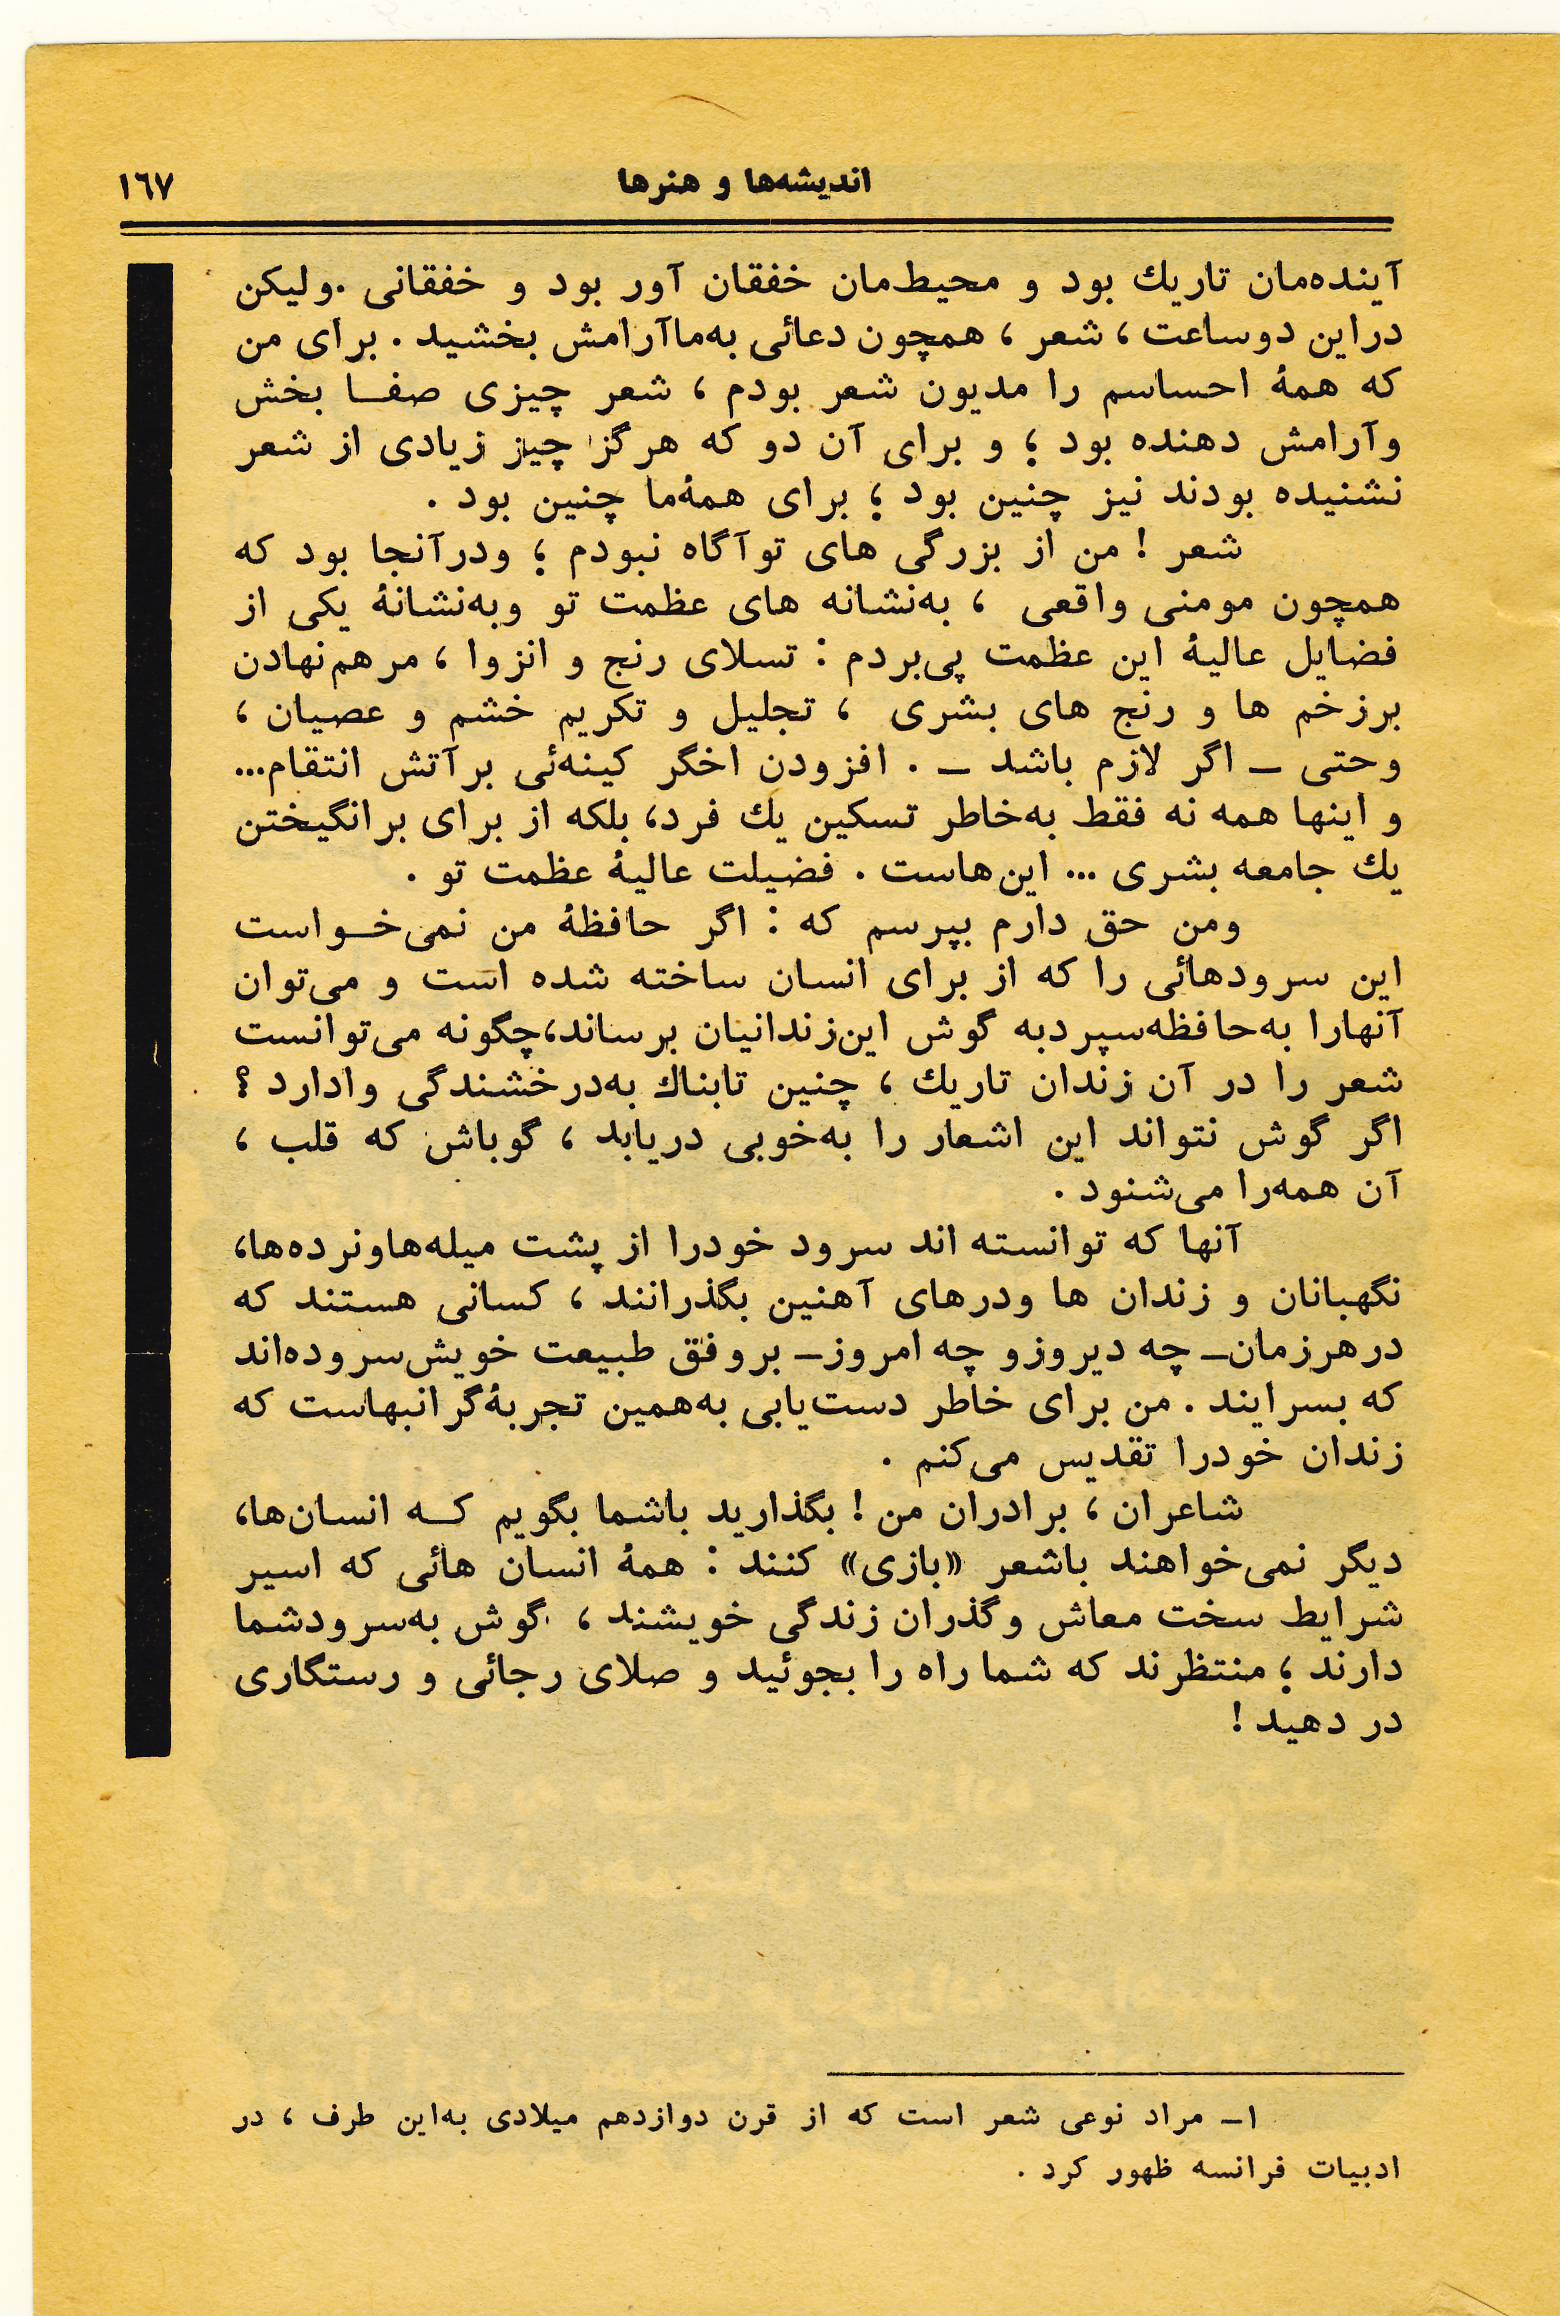 اندیشه‌ها و هنرها
۱٦۷
آینده‌مان تاریك بود و محیط‌مان خفقان آور بود و خفقانی .ولیکن
دراین دوساعت ، شعر ، همچون دعائی به‌ماآرامش بخشید . برای من
که همهٔ احساسم را مدیون شعر بودم ، شعر چیزی صفــا بخش
وآرامش دهنده بود ؛ و برای آن دو که هرگز چیز زیادی از شعر
نشنیده بودند نیز چنین بود ؛ برای همهٔ‌ما چنین بود .
شعر ! من از بزرگی های توآگاه نبودم ؛ ودرآنجا بود که
همچون مومنی واقعی ، به‌نشانه های عظمت تو وبه‌نشانهٔ یکی از
فضایل عالیهٔ این عظمت پی‌بردم : تسلای رنج و انزوا ، مرهم‌نهادن
برزخم ها و رنج های بشری ، تجلیل و تکریم خشم و عصیان ،
وحتی ــ اگر لازم باشد ــ . افزودن اخگر کینه‌ئی برآتش انتقام...
و اینها همه نه فقط به‌خاطر تسکین یك فرد، بلکه از برای برانگیختن
یك جامعه بشری ... این‌هاست . فضیلت عالیهٔ عظمت تو .
ومن حق دارم بپرسم که : اگر حافظهٔ من نمی‌خــواست
این سرودهائی را که از برای انسان ساخته شده است و می‌توان
آنهارا به‌حافظه‌سپردبه گوش این‌زندانیان برساند،چگونه می‌توانست
شعر را در آن زندان تاریك ، چنین تابناك به‌درخشندگی وادارد ؟
اگر گوش نتواند این اشعار را به‌خوبی دریابد ، گوباش که قلب ،
آن همه‌را می‌شنود .
آنها که توانسته اند سرود خودرا از پشت میله‌هاونرده‌ها،
نگهبانان و زندان ها ودرهای آهنین بگذرانند ، کسانی هستند که
درهرزمان‌ــ چه دیروزو چه امروزــ بروفق طبیعت خویش‌سروده‌اند
که بسرایند . من برای خاطر دست‌یابی به‌همین تجربهٔ‌گرانبهاست که
زندان خودرا تقدیس می‌کنم .
شاعران ، برادران من ! بگذارید باشما بگویم کــه انسان‌ها،
دیگر نمی‌خواهند باشعر «بازی» کنند : همهٔ انسان هائی که اسیر
شرایط سخت معاش وگذران زندگی خویشند ، گوش به‌سرودشما
دارند ؛ منتظرند که شما راه را بجوئید و صلای رجائی و رستگاری
در دهید !
۱ــ مراد نوعی شعر است که از قرن دوازدهم میلادی به‌این طرف ، در
ادبیات فرانسه ظهور کرد .